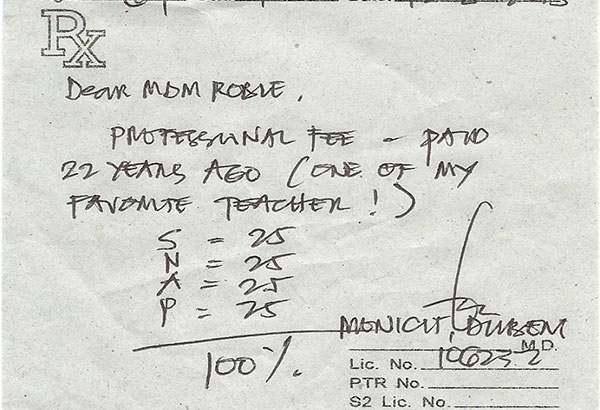 Rx
Dear MDM ROBLE,
PROFESSIONAL FEE - PAID
22 YEARS AGO (ONE OF MY
FAVORITE TEACHER!)
S = 25
N = 25
A = 25
P = 25
100%.
M.D.
Lic. No. 10623-2
PTR No.
S2 Lic. No.